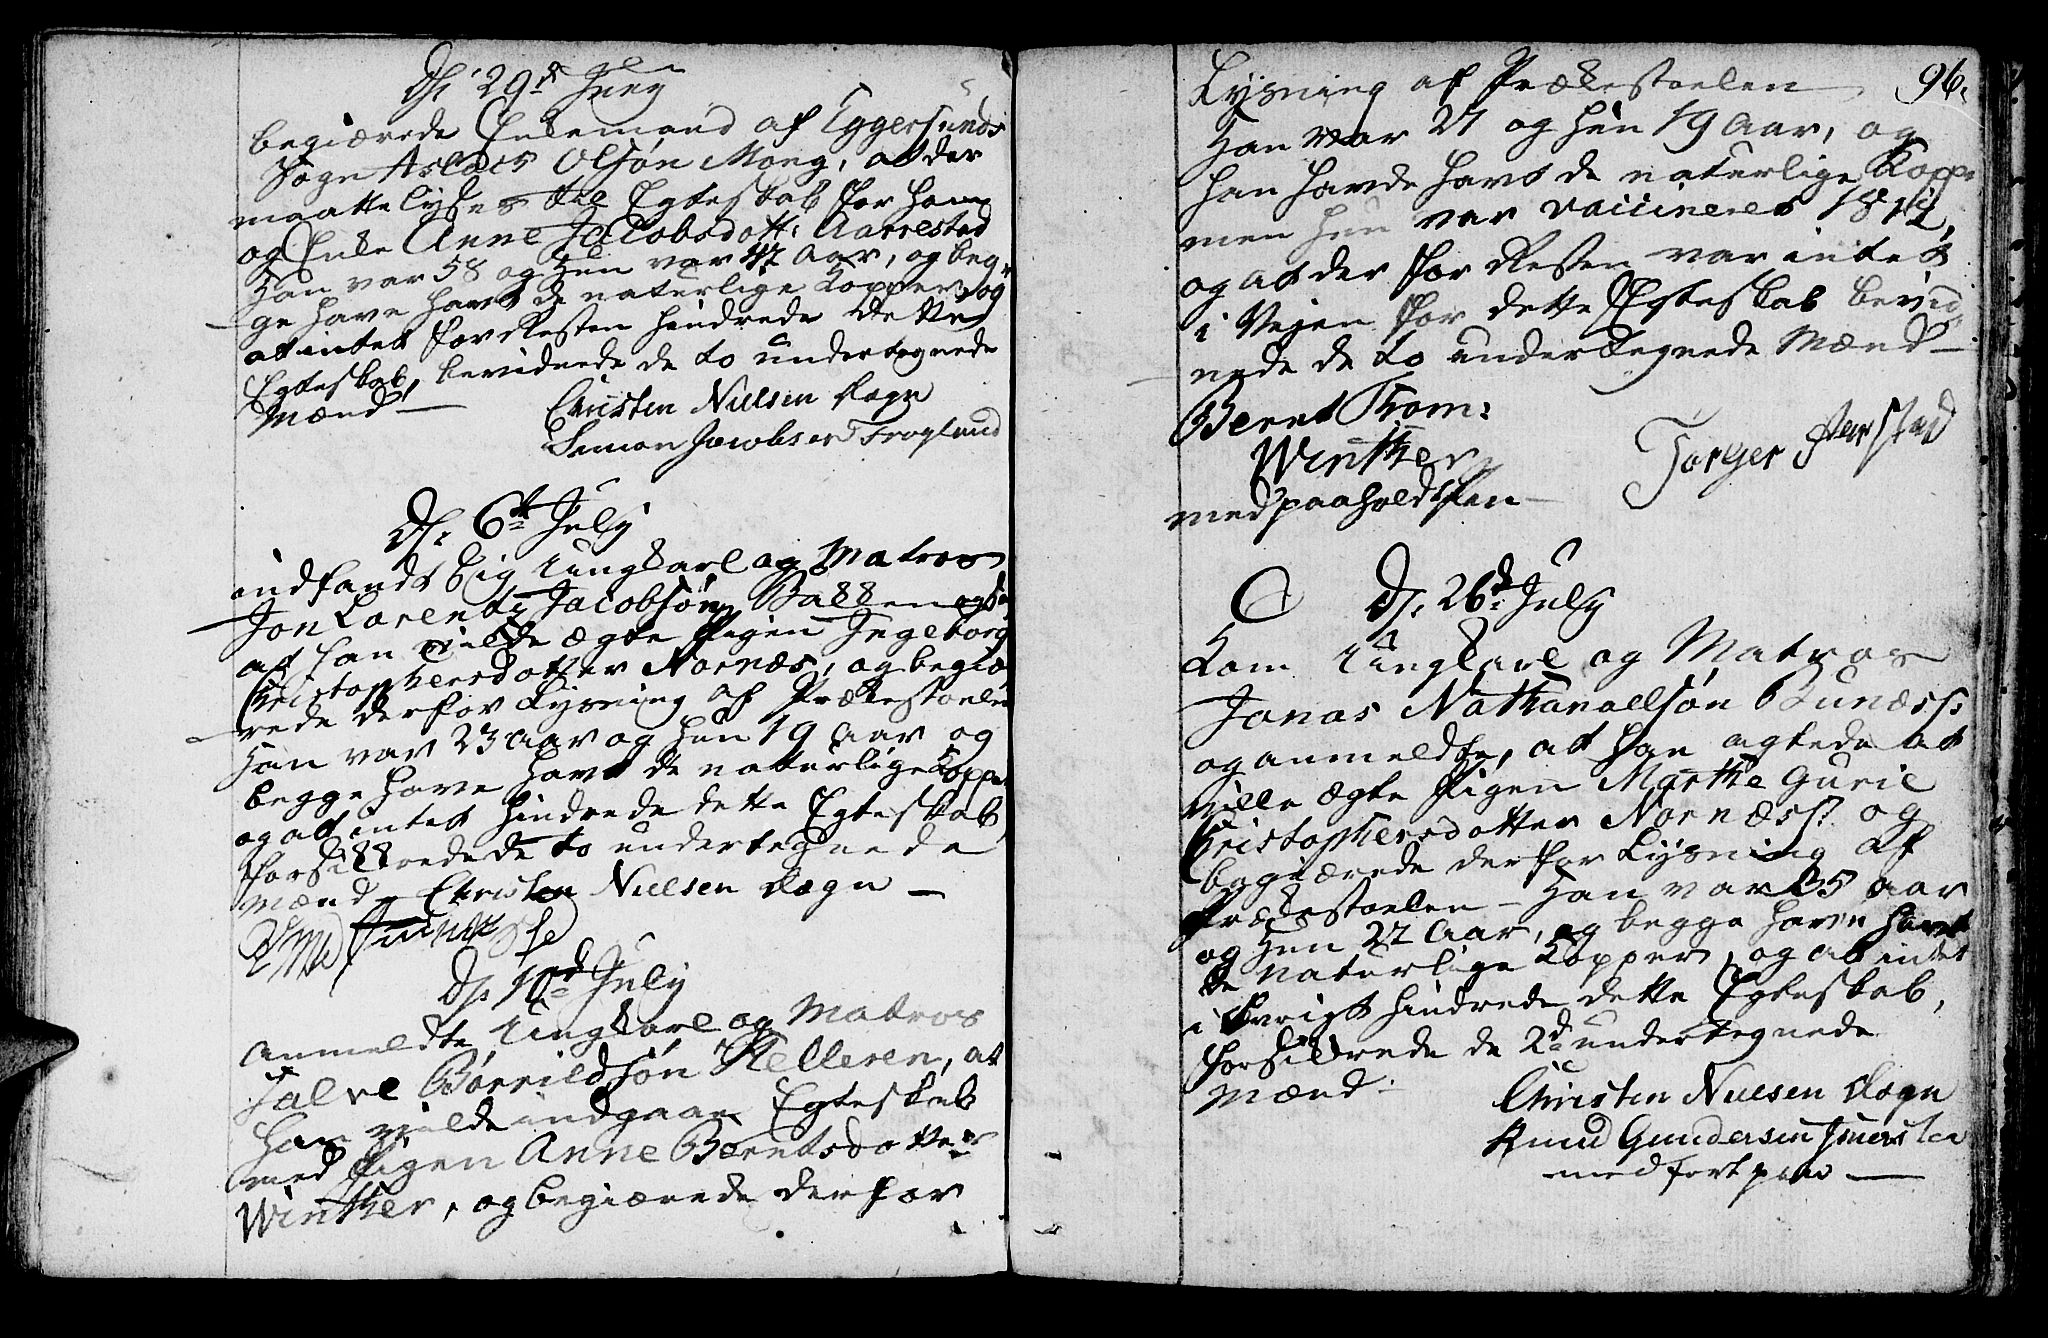 d: 29de Juny
begiærede Enkemand af Eggersunds
Sogn Aslach Olsøn Mong, at der
maatte lyses til Egteskab for ham
og Enke Anne Jacobsdott: Aarrestad
Han var 58 og Hun var 47 Aar, og beg-
ge have havt de naturlige Kopper, og
at intet for Resten hindrede dette
Egteskab, bevidnede de to undertegnede
Mænd —
Christen Nielsen Rægn
Simon Jacobsen Froglund
d: 6te July
indfandt sig Ungkarl og Matros
Jon Lorentz Jacobsøn Bakken
at han vilde ægte Pigen Ingeborg
Christophersdotter Nornæs, og begiæ-
rede derfor Lysning af Prækestoelen
Han var 23 Aar og hun 19 Aar og
begge have havt de naturlige Kopper
og at intet hindrede dette Egteskab,
forsikkrede de to undertegnede
Mænd – Christen Nielsen Rægn —
d: 10de July
anmeldte Ungkarl og Matros
Salve Børrildsøn Helleren, at
han vilde indgaae Egteskab
med Pigen Anne Berntsdotter
Winther, og begiærede derfor
96.
Lysning af Prækestoelen
Han var 27 og hun 19 Aar, og
han havde havt de naturlige Kopper
men hun var vaccineret 1812,
og at der for Resten var intet
i Vejen for dette Egteskab bevid-
nede de to undertegnede Mænd —
Bernt Thom:
Winther
med paaholdt Pen —
Torger Aarstad
d: 26de July
Kom Ungkarl og Matros
Jonas Nathanaelsøn Bunæss:
og anmeldte, at han agtede at
ville ægte Pigen Marthe Gurie
Christophersdotter Nornæss: og
begiærede derfor Lysning af
Prækestoelen – Han var 25 Aar
og Hun 22 Aar, og begge have havt
de naturlige Kopper, og at intet
i øvrigt hindrede dette Egteskab,
forsikrede de 2de undertegnede
Mænd:
Christen Nielsen Rægn
Knud Gundersen
med fort pen —